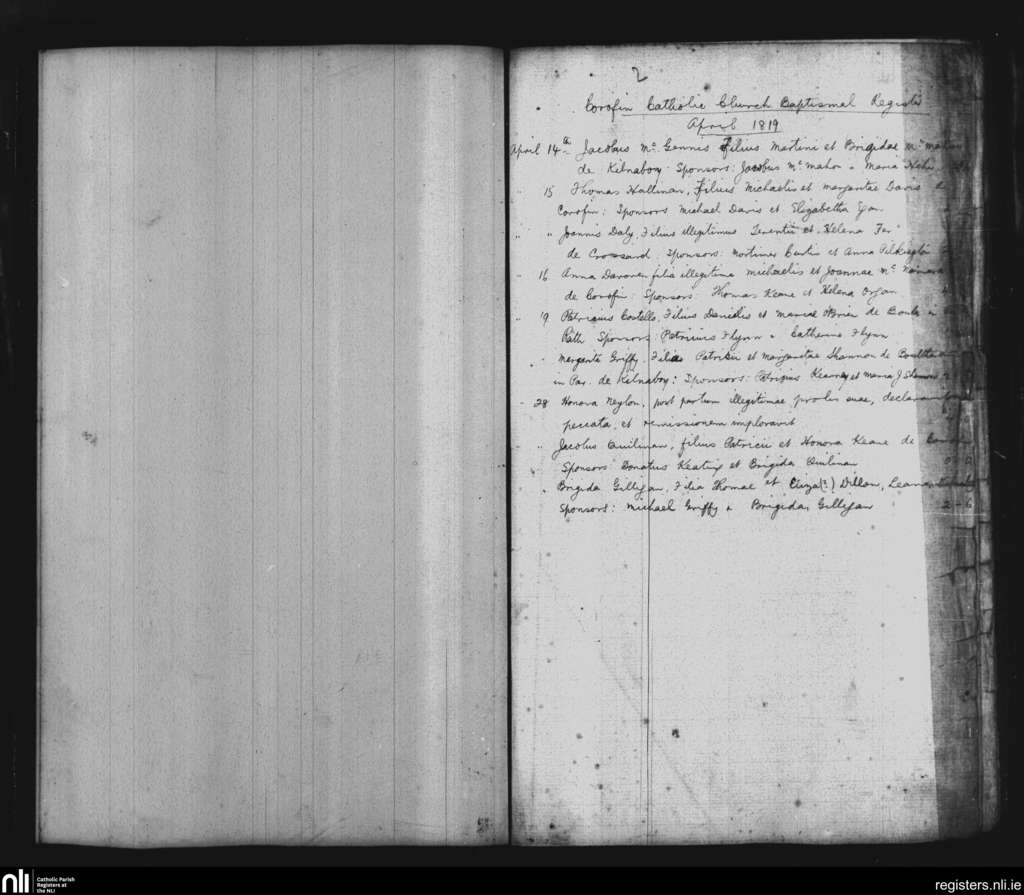 2
Corofin Catholic Church Baptismal Register
April 1819
April 14th Jacobus Mc Gennis Filius Martini et Brigidae Mc Mahon
de Kilnaboy Sponsors: Jacobus Mc Mahon & Maria
" 15 Thomas Hallinan, Filius Michaelis et Margaritae Davis de
Corofin: Sponsors Michael Davis et Elizabetha
" " Joannis Daly, Filius illegitimus Terentii et Helena
de Crossard: Sponsors: Mortimer Curtis et Anna Pilkington
" 16 Anna Davoren filia illegitima Michaelis et Joannae Mc Namara
de Corofin: Sponsors: Thomas Keane et Helena Organ
" 19 Patricius Costello, Filius Danielis et Mariae O'Brien de
Rath Sponsors: Patricius Flynn & Catherine Flynn
" Margarita Griffy, Filia Patricii et Margaritae Shannon de
in Par. de Kilnaboy: Sponsors: Patricius Kearney et Maria J
" 28 Honora Neylon, post partum illegitimae prolis suae, declaravit
peccata, et remissionem imploravit
" Jacobus Quilinan, filius Patricii et Honora Keane de
Sponsors Donatus Keating et Brigida Quilinan
" Brigida Gilligan, Filia Thomae et Eliza(?) Dillon,
Sponsors: Michael Griffy & Brigida Gilligan 2-6
nli Catholic Parish
Registers at
the NLI
registers.nli.ie